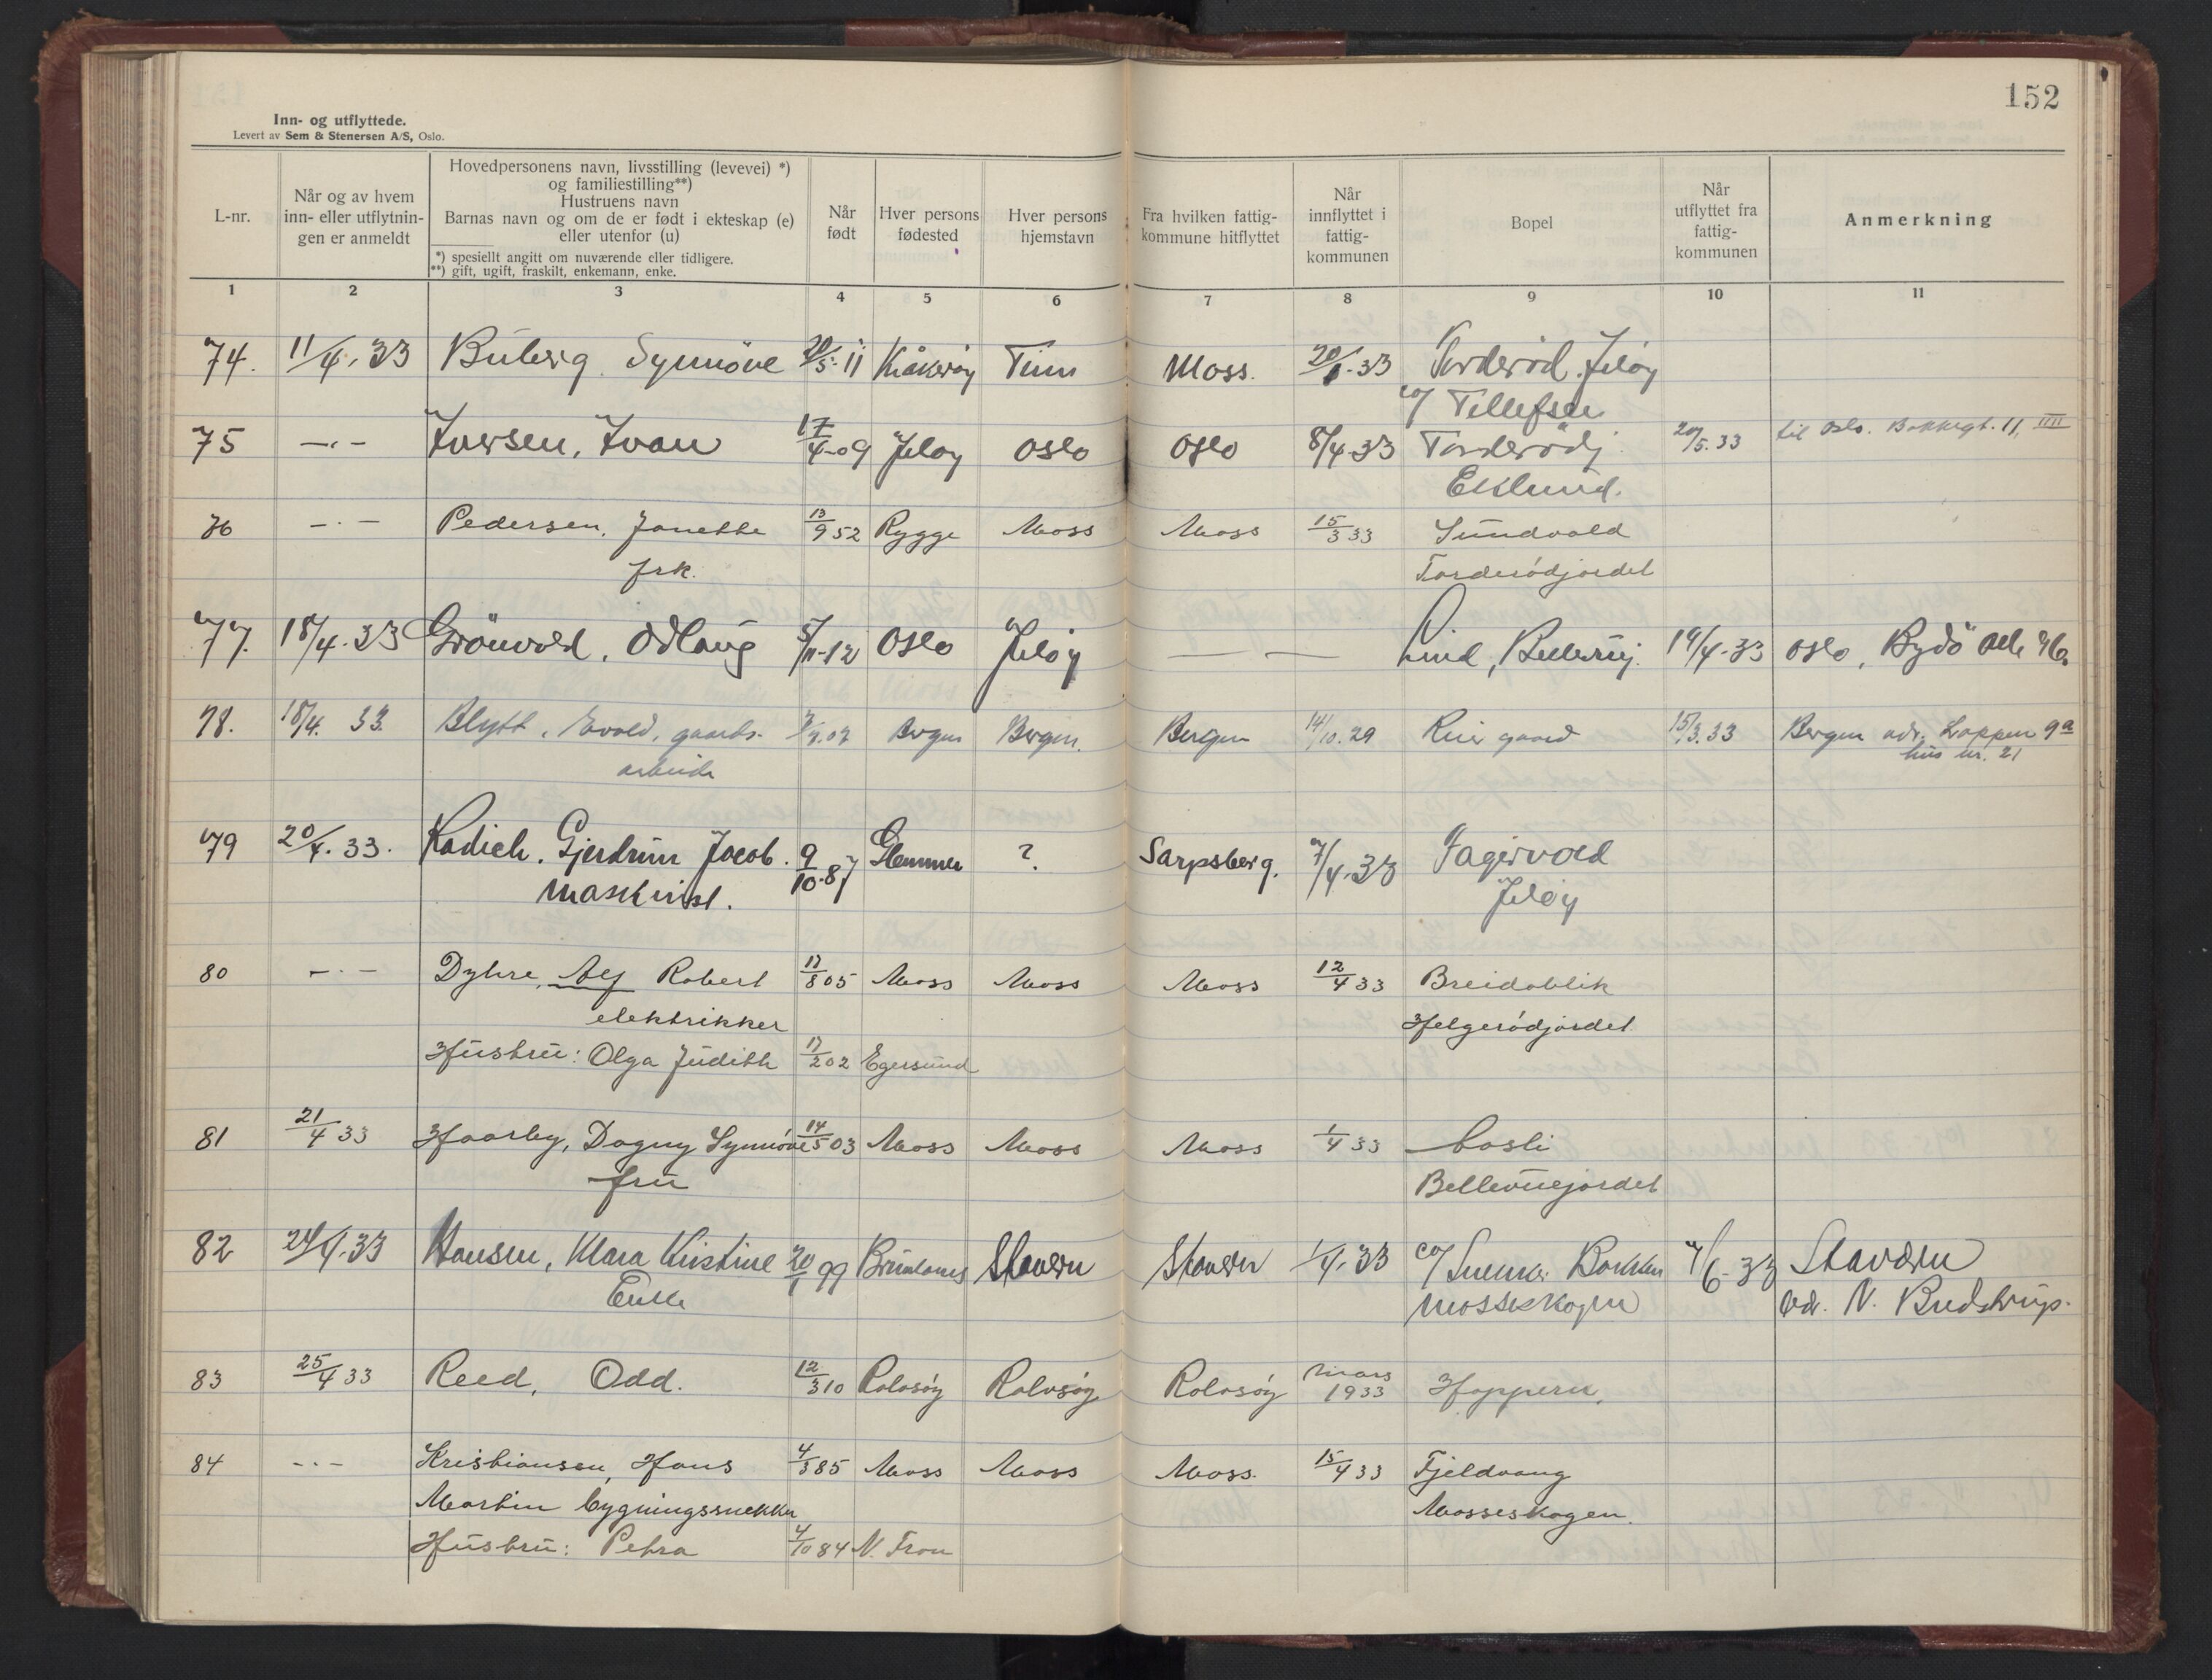 152
Inn- og utflyttede.
Levert av Sem & Stenersen A/S, Oslo.
L-nr.
Når og av hvem inn- eller utflytnin- gen er anmeldt
Hovedpersonens navn, livsstilling (levevei) *)
og familiestilling**)
Hustruens navn
Barnas navn og om de er født i ekteskap (e)
eller utenfor (u)
*) spesiellt angitt om nuværende eller tidligere.
**) gift, ugift, fraskilt, enkemann, enke.
Når født
Hver persons fødested
Hver persons hjemstavn
Fra hvilken fattig- kommune hitflyttet
Når innflyttet i fattig- kommunen
Bopel
Når utflyttet fra fattig- kommunen
Anmerkning
1 2 3 4 5 6 7 8 9 10 11
74. 11/4.33 Synnöve 20/5-11 Kråkerøy Tinn Moss. 20/1-33 Torderød. Jeløy
c/o Tellefsen
75 -"- Iversen, Ivan 17/4-09 Jeløy Oslo Oslo 8/4-33 Torderödj 20/5.33 til Oslo. Bakkegt. 11, IIII
Eklund.
76 -"- Pedersen, Janette 13/9 52 Rygge Moss Moss 15/3 33 Sundvold
frk. Torderödjordet
77. 18/4.33 Grönvold, Odlaug 5/11-12 Oslo Jeløy — — Lind, 19/4-33 Oslo, Bygdö
78. 18/4. 33. Blytt, Evald, gaards- Bergen Bergen. Bergen 14/10.29 Rier gaard 15/3.33 Bergen adr. Loppen 9a
arbeider hus nr. 21
79 20/4.33. Radich, Gjerdrum Jacob. 9/10-87 Glemmen ?. Sarpsberg. 7/4.33 Fagervold
maskinist. Jeløy
80 -"- Dyhre, Alf Robert 17/8 05 Moss Moss Moss 12/4 33 Breidablik
elektrikker Helgerödjordet
Hustru: Olga Judith 17/2 02 Egersund
81 21/4 33 Haarby, Dagny Synnöve 14/5 03 Moss Moss Moss 1/4 33 Aasli
fru Bellevuejordet
82 24/4.33 Hansen, Klara Kristine 20/1 99 Brunlanes Stavern Stavern 1/4.33 c/o Snekker Bakken 7/6-33 Stavern
Enke Mosseskogen adr. N. Budstrup.
83 25/4 33 Reed, Odd. 12/3 10 Rolvsöy Rolvsöy Rolvsöy mars 1933 Hoppern.
84 -"- Kristiansen, Hans 4/3 85 Moss Moss Moss. 15/4 33 Fjeldvang
Martin bygningssnekker Mosseskogen.
Hustru: Petra 4/10 84 N. Fron